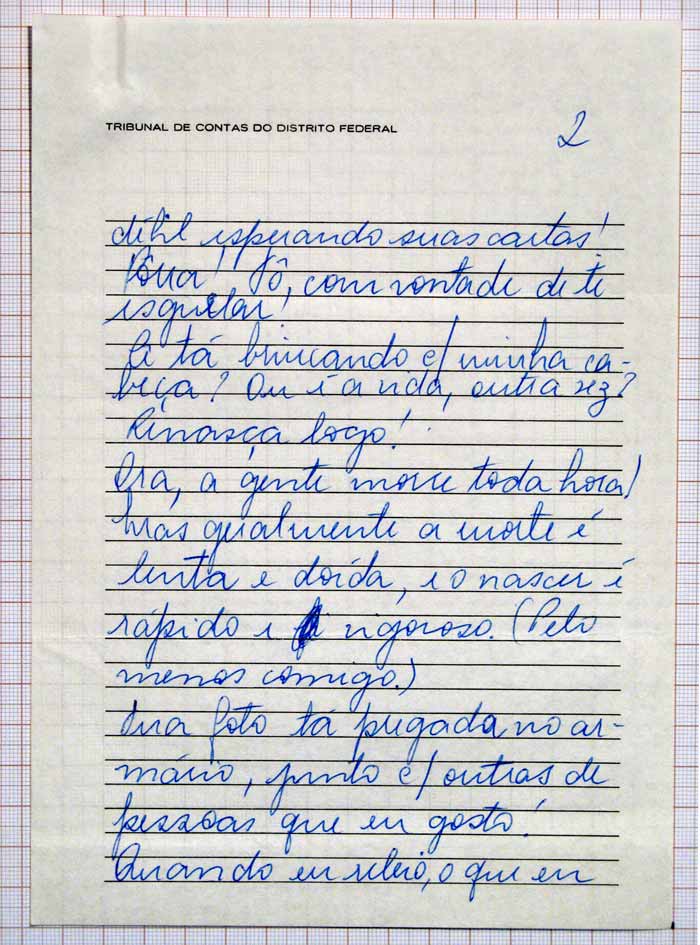 TRIBUNAL DE CONTAS DO DISTRITO FEDERAL
2
débil esperando suas cartas!
Pôrra! Tô, com vontade de te
esguelar!
Cê tá brincando c/ minha ca-
beça? Ou é a vida, outra vez?
Renasça logo!
Ora, a gente morre toda hora!
Mas geralmente a morte é
lenta e doída, e o nascer é
rápido e vigoroso. (Pelo
menos comigo.)
Tua foto tá pregada no ar-
mário, junto c/ outras de
pessoas que eu gosto!
Quando eu releio, o que eu